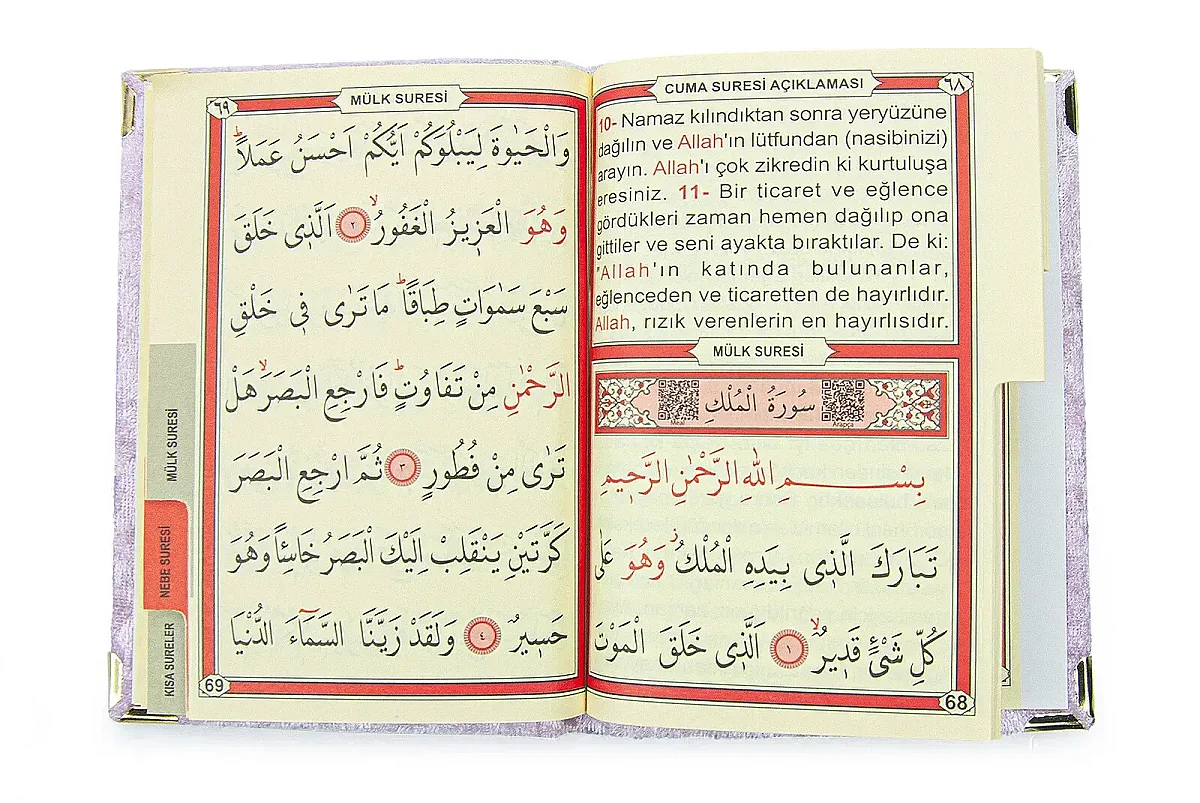 ٦٨
CUMA SURESİ AÇIKLAMASI
10- Namaz kılındıktan sonra yeryüzüne
dağılın ve Allah'ın lütfundan (nasibinizi)
arayın. Allah'ı çok zikredin ki kurtuluşa
eresiniz. 11- Bir ticaret ve eğlence
gördükleri zaman hemen dağılıp ona
gittiler ve seni ayakta bıraktılar. De ki:
"Allah'ın katında bulunanlar,
eğlenceden ve ticaretten de hayırlıdır.
Allah, rızık verenlerin en hayırlısıdır.
MÜLK SURESİ
Meal
سُورَةُ الْمُلْكِ
Arapça
بِسْــــــمِ اللهِ الرَّحْمٰنِ الرَّحِيمِ
تَبَارَكَ الَّذٖى بِيَدِهِ الْمُلْكُ وَهُوَ عَلٰى
كُلِّ شَیْءٍ قَدٖيرٌ ١ اَلَّذٖى خَلَقَ الْمَوْتَ
68
٦٩
MÜLK SURESİ
وَالْحَيٰوةَ لِيَبْلُوَكُمْ اَيُّكُمْ اَحْسَنُ عَمَلًا
وَهُوَ الْعَزٖيزُ الْغَفُورُ ٢ اَلَّذٖى خَلَقَ
سَبْعَ سَمٰوَاتٍ طِبَاقًا مَا تَرٰى فٖى خَلْقِ
الرَّحْمٰنِ مِنْ تَفَاوُتٍ فَارْجِعِ الْبَصَرَ هَلْ
تَرٰى مِنْ فُطُورٍ ٣ ثُمَّ ارْجِعِ الْبَصَرَ
كَرَّتَيْنِ يَنْقَلِبْ اِلَيْكَ الْبَصَرُ خَاسِئًا وَهُوَ
حَسٖيرٌ ٤ وَلَقَدْ زَيَّنَّا السَّمَٓاءَ الدُّنْيَا
69
MÜLK SURESİ
NEBE SURESİ
KISA SURELER